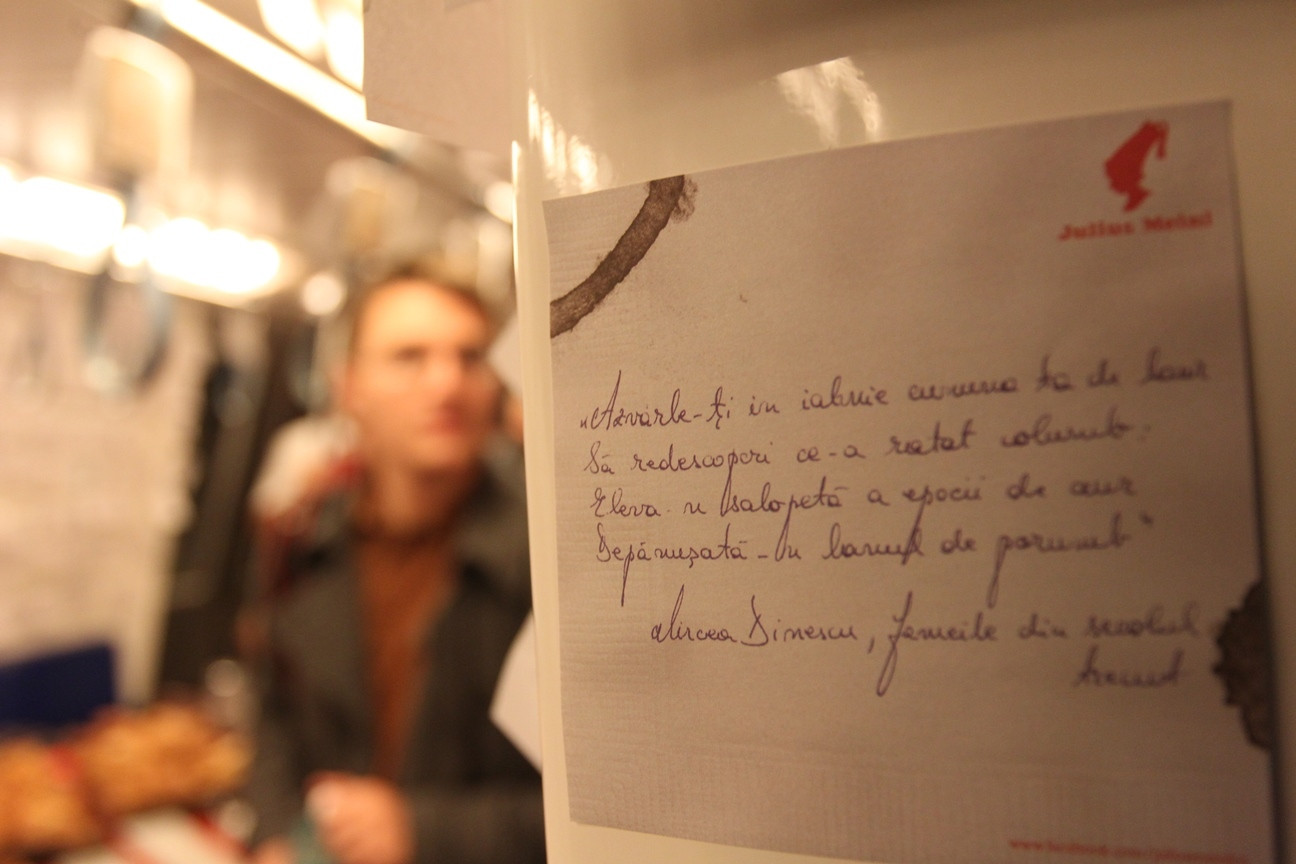 Julius Meinl
„Azvârle-ți in iatmie cununa ta de laur
Să redescoperi ce-a ratat columb.
Eleva-n salopetă a epocii de aur
Depănușată-n lanul de porumb"
Mircea Dinescu, femeile din secolul
trecut